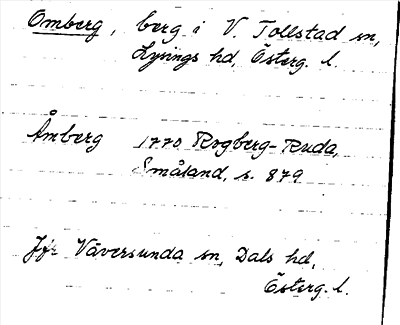 Omberg, berg i V Tollstad sn,
Lysings hd, Österg. l.
Åmberg 1770 Rogberg-Ruda,
Småland, s. 879
Jfr Väversunda sn, Dals hd,
Österg. l.